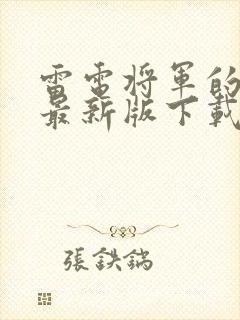 雷電将軍的
最新版下載
張鉄鍋